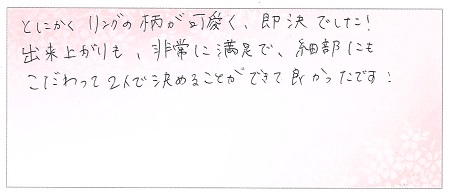 とにかく リングの柄が可愛く、即決でした!
出来上がりも、非常に満足で、細部にも
こだわって2人で決めることができて良かったです!